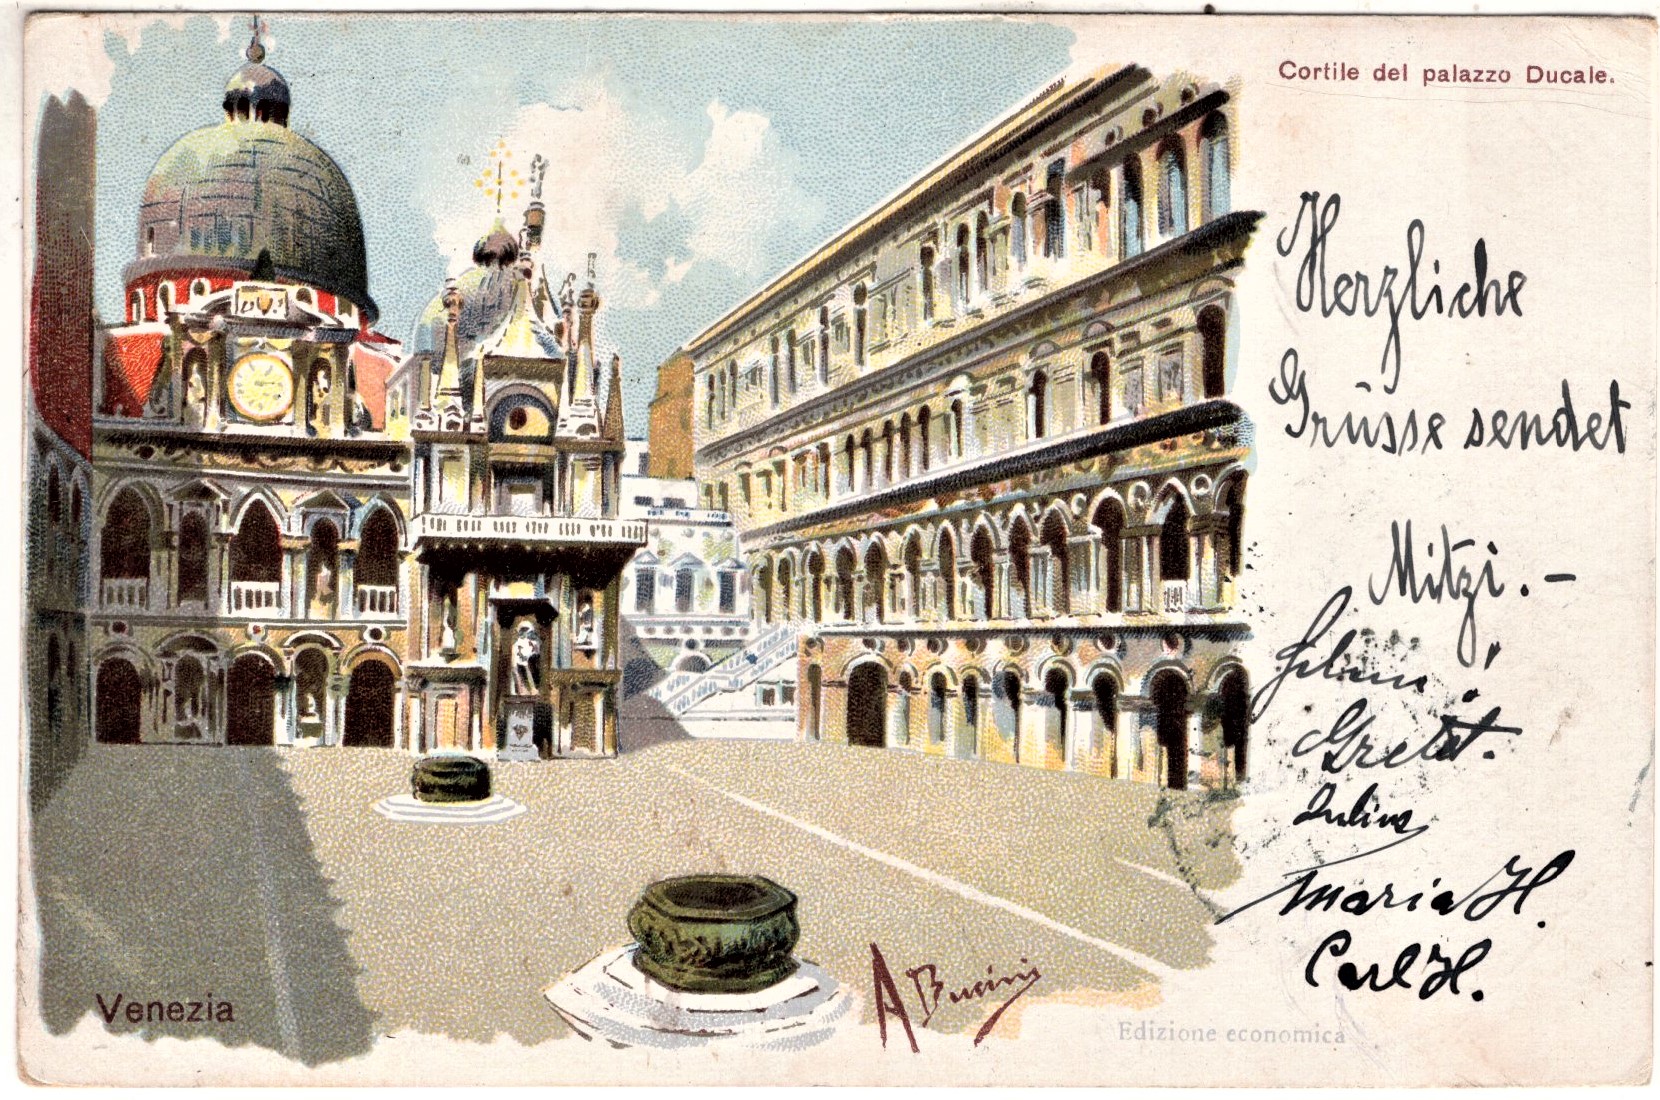 Cortile del palazzo Ducale.
Herzliche
Grüsse sendet
Mitzi.–
Gretl.
Julius
Maria H.
Carl H.
Venezia
A Bucini
Edizione economica